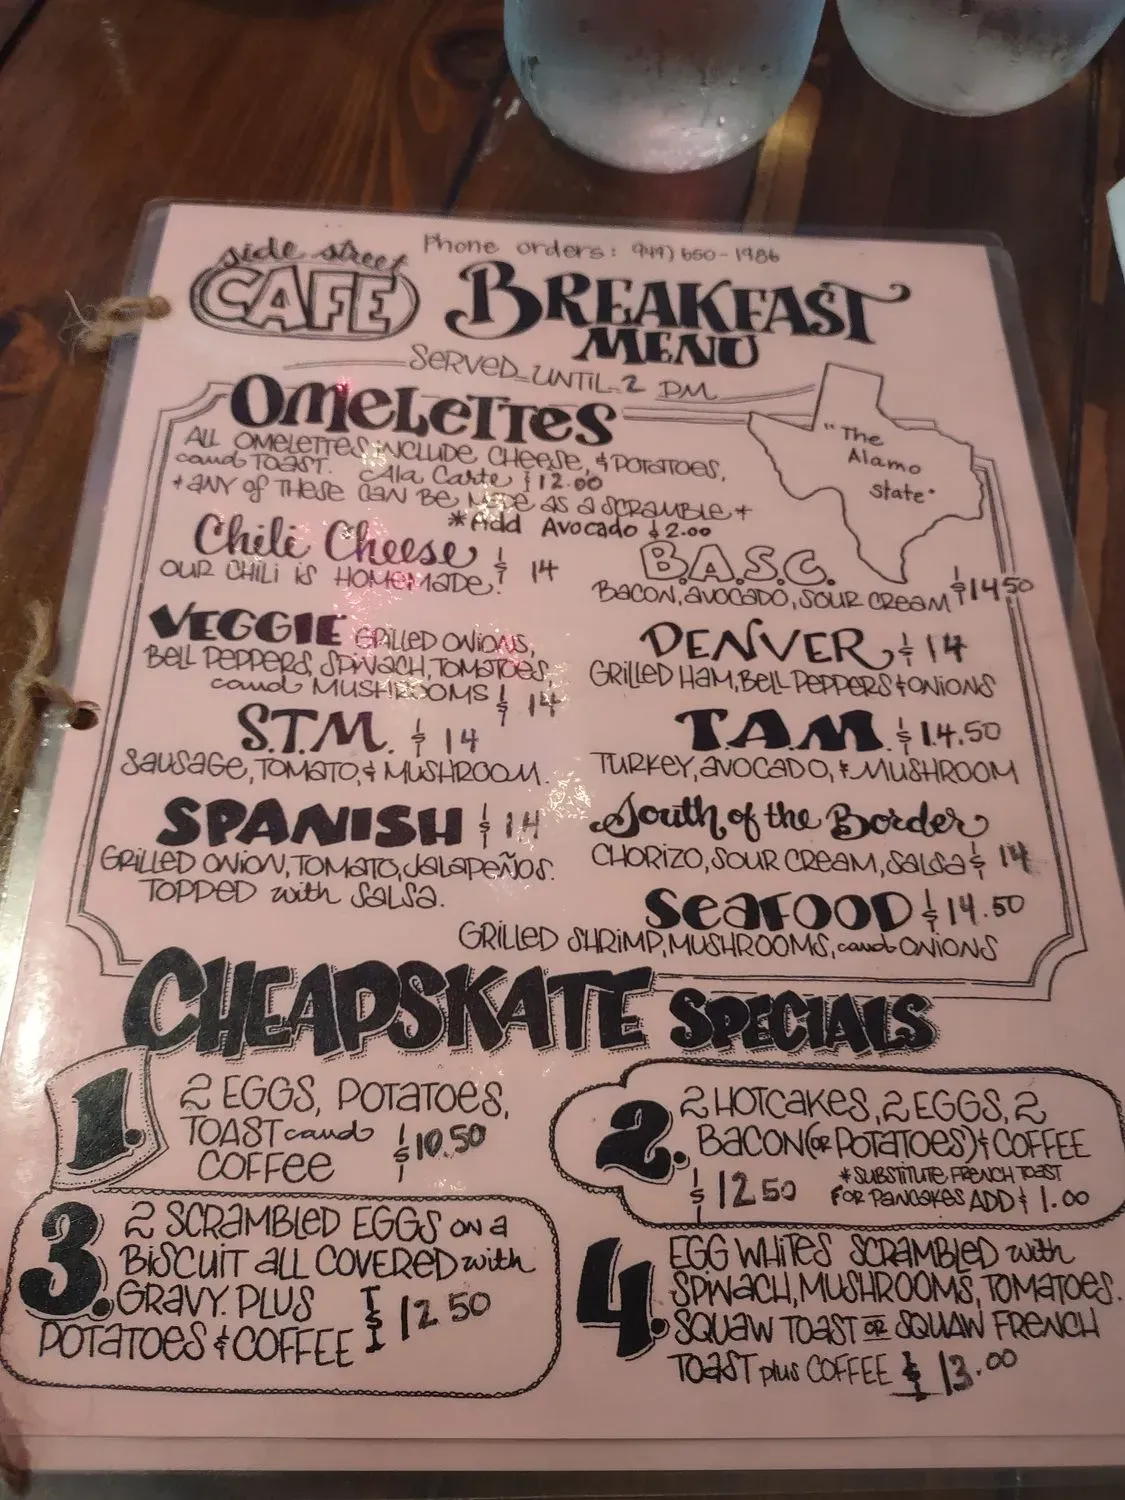 side street
CAFE
Phone orders: 949) 650-1986
BREAKFAST
MENU
SERVED UNTIL 2 PM
OMELETTES
ALL OMELETTES INCLUDE CHEESE, & POTATOES,
and TOAST. Ala Carte $12.00
+ ANY OF THESE CAN BE MADE AS A SCRAMBLE +
*Add Avocado $2.00
"The
Alamo
State"
Chili Cheese $14
OUR CHILI IS HOMEMADE!
B.A.S.C.
BACON, AVOCADO, SOUR CREAM $14.50
VEGGIE GRILLED ONIONS,
BELL PEPPERS, SPINACH, TOMATOES,
and MUSHROOMS $14
DENVER $14
GRILLED HAM, BELL PEPPERS & ONIONS
S.T.M. $14
SAUSAGE, TOMATO, & MUSHROOM.
T.A.M. $14.50
TURKEY, AVOCADO, & MUSHROOM
SPANISH $14
GRILLED ONION, TOMATO, JALAPEÑOS.
TOPPED with SALSA.
South of the Border
CHORIZO, SOUR CREAM, SALSA $14
SEAFOOD $14.50
GRILLED SHRIMP, MUSHROOMS, and ONIONS
CHEAPSKATE SPECIALS
1. 2 EGGS, POTATOES,
TOAST and
COFFEE $10.50
2. 2 HOTCAKES, 2 EGGS, 2
BACON (OR POTATOES) & COFFEE
$12.50
*SUBSTITUTE FRENCH TOAST
FOR PANCAKES ADD $1.00
3. 2 SCRAMBLED EGGS ON A
BISCUIT ALL COVERED with
GRAVY. PLUS
POTATOES & COFFEE $12.50
4. EGG WHITES SCRAMBLED with
SPINACH, MUSHROOMS, TOMATOES.
SQUAW TOAST OR SQUAW FRENCH
TOAST plus COFFEE $13.00